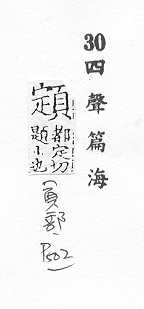 30四聲篇海
顁
都定切
題小也
(頁部, P502)